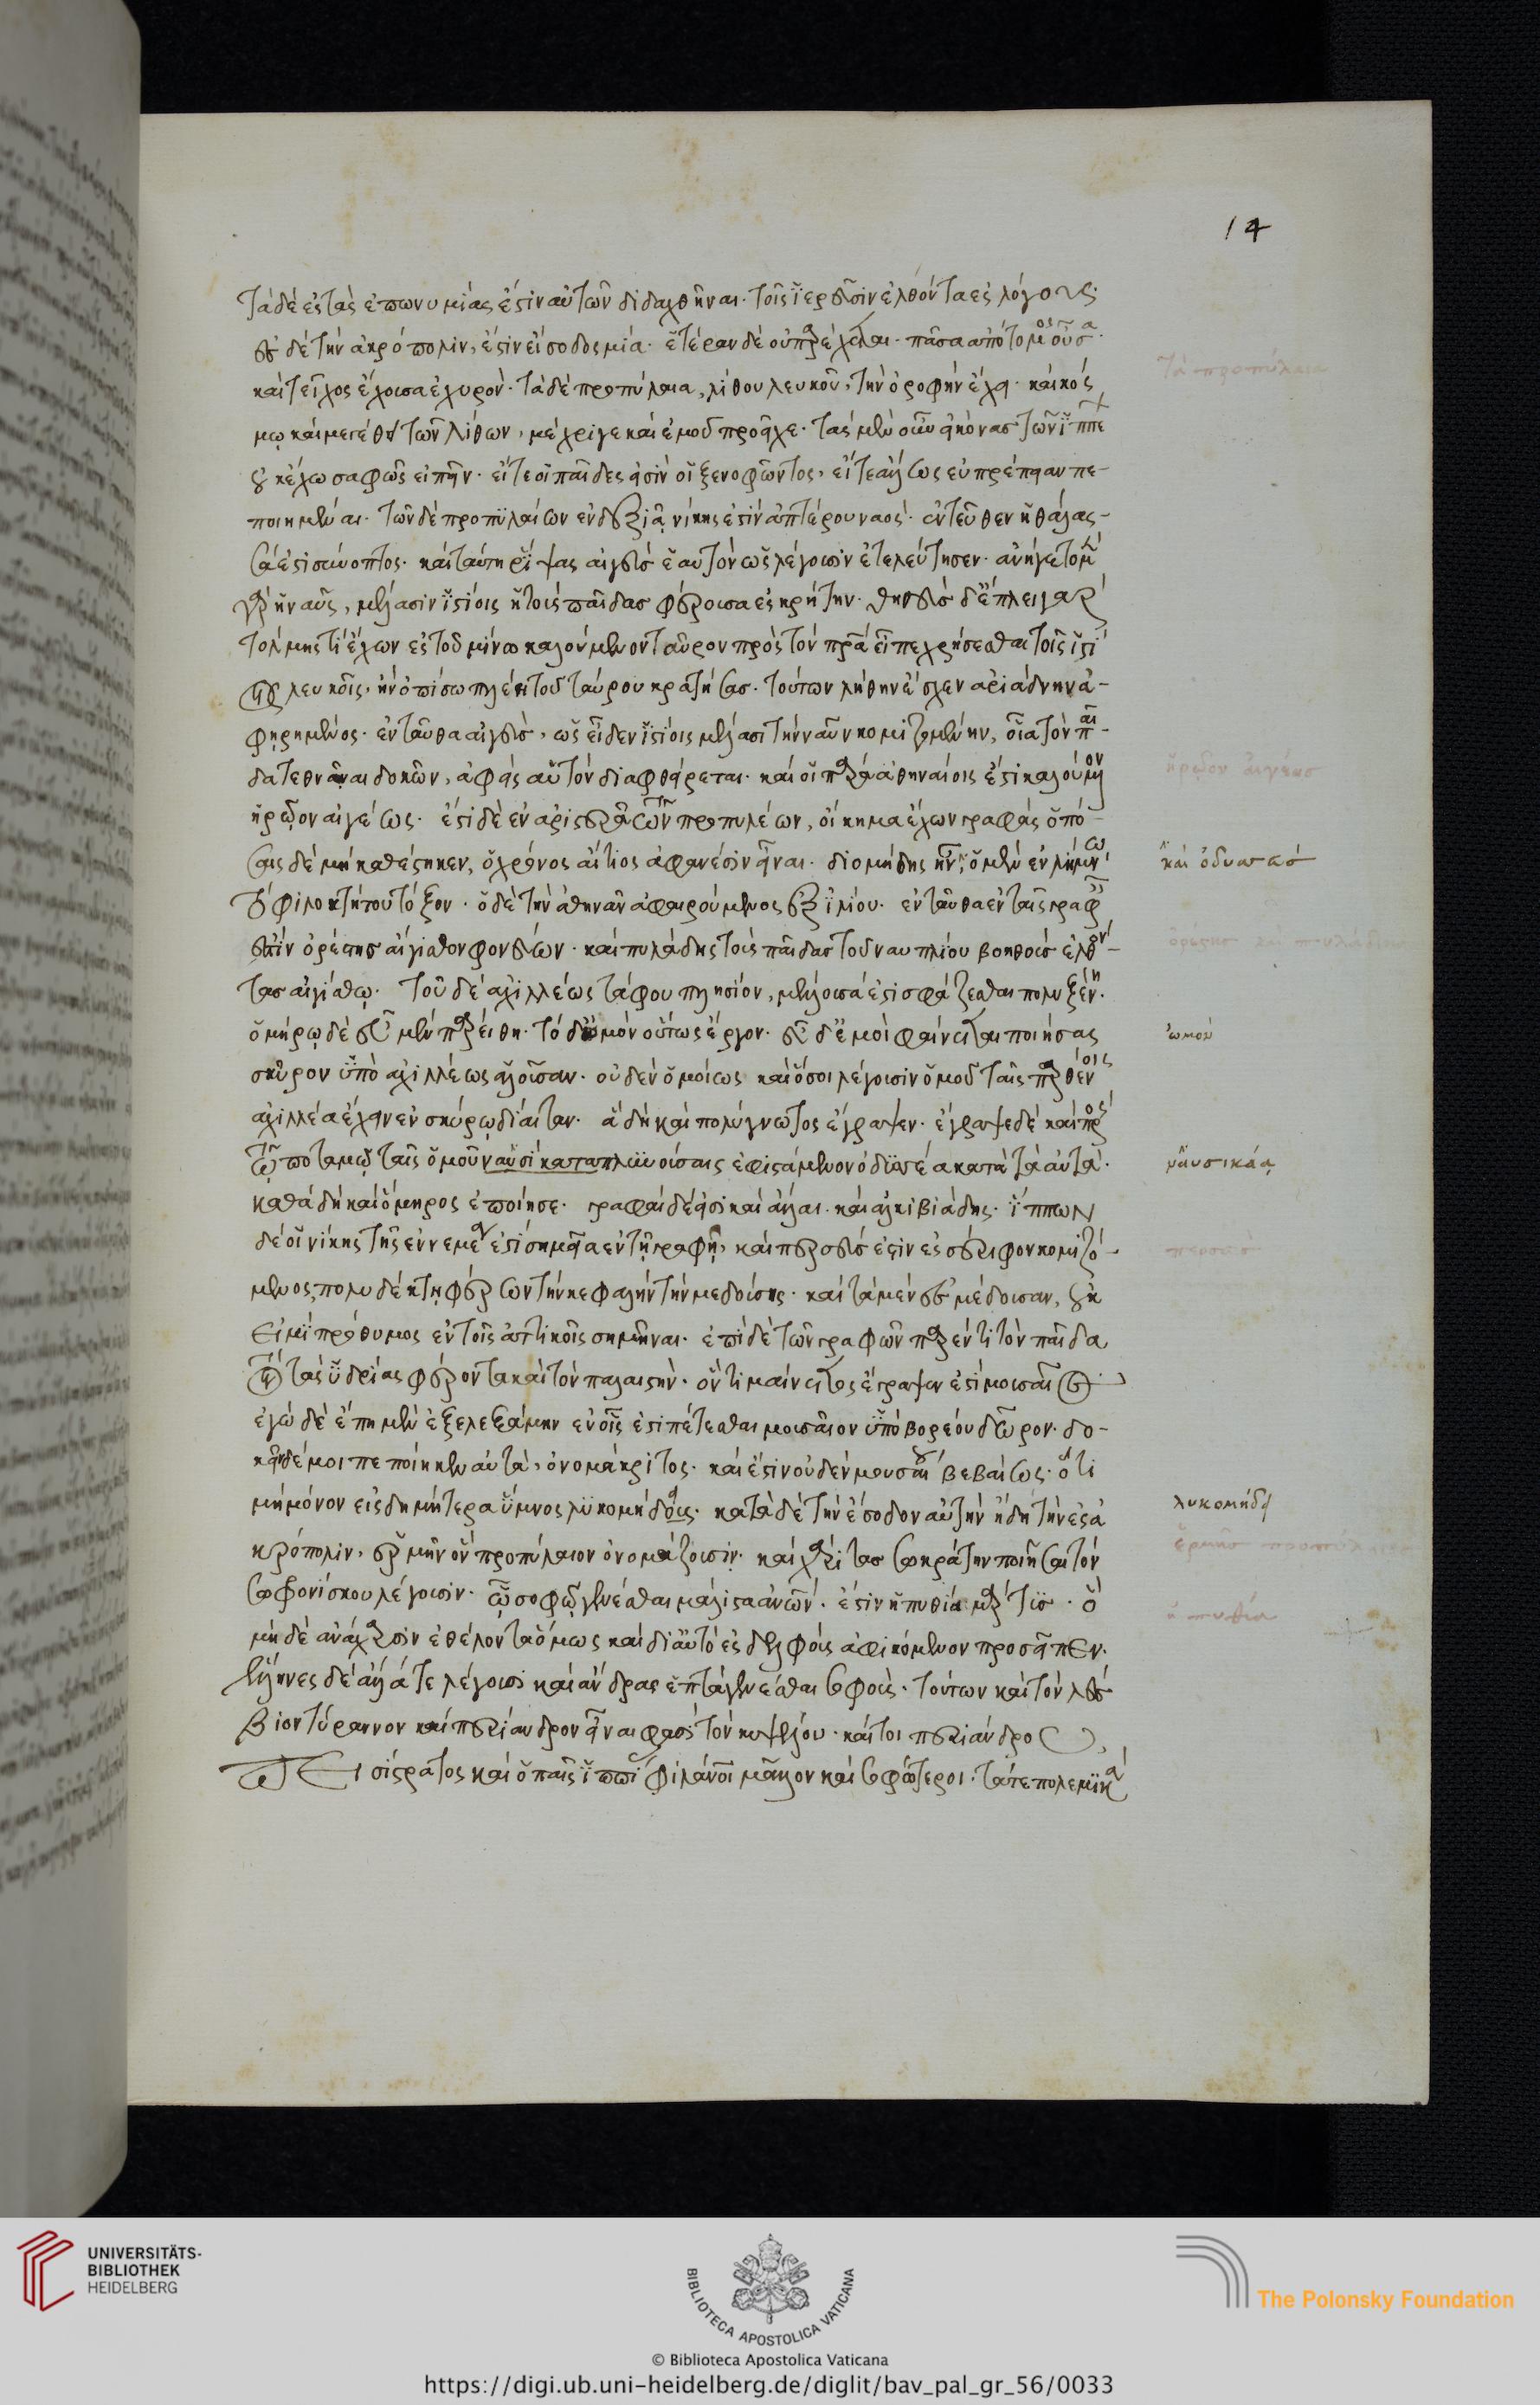 14
τὰ δὲ ἐς τὰς ἐπωνυμίας ἐστὶν αὐτῶν διδαχθῆναι. τοῖς ἱεροῦσιν ἐλθόντα ἐς λόγους.
ἐς δὲ τὴν ἀκρόπολιν, ἐστὶν εἴσοδος μία. ἑτέραν δὲ οὐ παρέχεται. πᾶσα ἀπότομος οὖσα.
καὶ τεῖχος ἔχουσα ἐχυρόν. τὰ δὲ προπύλαια, λίθου λευκοῦ, τὴν ὀροφὴν ἔχει. καὶ κόσ
μῳ καὶ μεγέθει τῶν λίθων, μέχρι γε καὶ ἐμοῦ προεῖχε. τὰς μὲν οὖν εἰκόνας τῶν ἱππε
οὐκ ἔχω σαφῶς εἰπεῖν. εἴτε οἱ παῖδές εἰσιν οἱ ξενοφῶντος, εἴτε ἄλλως εὐπρέπειαν πε-
ποιημέναι. τῶν δὲ προπυλαίων ἐν δεξιᾷ νίκης ἐστὶν ἀπτέρου ναός. ἐντεῦθεν ἡ θάλασ-
σά ἐστι σύνοπτος. καὶ ταύτῃ ῥίψας αἰγεὺς ἑαυτὸν ὡς λέγουσιν ἐτελεύτησεν. ἀνήγετο μὲν
γὰρ ἡ ναῦς, μέλασιν ἱστίοις ἡ τοὺς παῖδας φέρουσα ἐς κρήτην. θησεὺς δὲ ἔπλει γὰρ
τόλμης τι ἔχων ἐς τὸν μίνω καλούμενον ταῦρον πρὸς τὸν πατέρα εἶπε χρήσεσθαι τοῖς ἱστί
οις λευκοῖς, ἢν ὀπίσω πλέῃ τοῦ ταύρου κρατήσας. τούτων λήθην ἔσχεν ἀριάδνην ἀ-
φῃρημένος. ἐνταῦθα αἰγεὺς, ὡς εἶδεν ἱστίοις μέλασι τὴν ναῦν κομιζομένην, οἷα τὸν παῖ-
δα τεθνάναι δοκῶν, ἀφεὶς αὑτὸν διαφθείρεται. καί οἱ παρὰ ἀθηναίοις ἐστὶ καλούμενον
ἡρῷον αἰγέως. ἔστι δὲ ἐν ἀριστερᾷ τῶν προπυλέων, οἴκημα ἔχων γραφάς ὁπό-
σαις δὲ μὴ καθέστηκεν, ὁ χρόνος αἴτιος ἀφανέσιν εἶναι. διομήδης ἦν, ὁ μὲν ἐν λήμνῳ
τὸ φιλοκτήτου τόξον. ὁ δὲ τὴν ἀθηνᾶν ἀφαιρούμενος ἐξ ἰλίου. ἐνταῦθα ἐν ταῖς γραφαῖς
ἐστὶν ὀρέστης αἴγισθον φονεύων. καὶ πυλάδης τοὺς παῖδας τοῦ ναυπλίου βοηθοὺς ἐλθόν-
τας αἰγίσθῳ. τοῦ δὲ ἀχιλλέως τάφου πλησίον, μέλλουσά ἐστι σφάζεσθαι πολυξένη.
ὁμήρῳ δὲ εὖ μὲν παρείθη. τὸ δὲ ὠμὸν οὕτως ἔργον. εὖ δέ μοι φαίνεται ποιήσας
σκῦρον ὑπὸ ἀχιλλέως ἁλοῦσαν. οὐδὲν ὁμοίως καὶ ὅσοι λέγουσιν ὁμοῦ ταῖς παρθένοις
ἀχιλλέα ἔχειν ἐν σκύρῳ δίαιταν. ἃ δὴ καὶ πολύγνωτος ἔγραψεν. ἔγραψε δὲ καὶ πρὸς
τῷ ποταμῷ ταῖς ὁμοῦ ναυσὶ καταπλυνούσαις ἐφιστάμενον ὀδυσσέα κατὰ τὰ αὐτὰ.
καθὰ δὴ καὶ ὅμηρος ἐποίησε. γραφαὶ δέ εἰσι καὶ ἄλλαι. καὶ ἀλκιβιάδης. ἵππων
δέ οἱ νίκης τῆς ἐν νεμέᾳ ἐστὶ σημεῖα ἐν τῇ γραφῇ, καὶ περσεύς ἐστιν ἐς σέριφον κομιζό-
μενος, πολυδέκτῃ φέρων τὴν κεφαλὴν τὴν μεδούσης. καὶ τὰ μὲν ἐς μέδουσαν, οὐκ
εἰμὶ πρόθυμος ἐν τοῖς ἀττικοῖς σημῆναι. ἐπὶ δὲ τῶν γραφῶν παρέντι τὸν παῖδα
τὸν τὰς ὑδρίας φέροντα καὶ τὸν παλαιστὴν. ὃν τιμαίνετος ἔγραψεν ἐστὶ μουσαῖος
ἐγὼ δὲ ἔπη μὲν ἐξελεξάμην ἐν οἷς ἐστὶ πέτεσθαι μουσαῖον ὑπὸ βορέου δῶρον. δο-
κεῖν δέ μοι πεποίηκεν αὐτὰ, ὀνομάκριτος. καὶ ἔστιν οὐδὲν μουσαίου βεβαίως. ὅτι
μὴ μόνον εἰς δήμητερα ὕμνος λυκομήδαις. κατὰ δὲ τὴν ἔσοδον αὐτὴν ἤδη τὴν ἐς ἀ
κρόπολιν, ἑρμῆν ὃν προπύλαιον ὀνομάζουσιν. καὶ χάριτας σωκράτην ποιῆσαι τὸν
σωφρονίσκου λέγουσιν. ᾧ σοφῷ γενέσθαι μάλιστα ἀνθρώπων. ἐστὶν ἡ πυθία μάρτυς. ὃ
μηδὲ ἀνάχαρσιν ἐθέλοντα ὅμως καὶ δι' αὐτὸ ἐς δελφοὺς ἀφικόμενον προσεῖπεν.
ἕλληνες δὲ ἄλλα τε λέγουσι καὶ ἄνδρας ἑπτὰ γενέσθαι σοφούς. τούτων καὶ τὸν λέσ
βιον τύραννον καὶ περίανδρον εἶναι φασὶ τὸν κυψέλου. καίτοι περιάνδρου
πεισίστρατος καὶ ὁ παῖς ἱππίας φιλάνθρωποι μᾶλλον καὶ σοφώτεροι. τά τε πολεμικὰ
τὰ προπύλαια
ἡρῷον αἰγέως
καὶ ὀδυσσεύς
ὀρέστης καὶ πυλάδης
ὠμόν
ναυσικάᾳ
περσεύς
λυκομήδῃ
ἑρμῆς προπύλαιος
ἡ πυθία
UNIVERSITÄTS-
BIBLIOTHEK
HEIDELBERG
BIBLIOTECA APOSTOLICA VATICANA
The Polonsky Foundation
© Biblioteca Apostolica Vaticana
https://digi.ub.uni-heidelberg.de/diglit/bav_pal_gr_56/0033